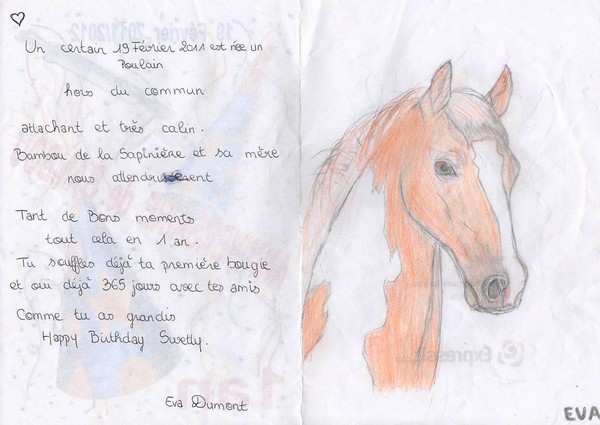 Un certain 19 Février 2011 est née un
Poulain
hors du commun
attachant et très calin.
Bambou de la Sapinière et sa mère
nous attendrissent
Tant de Bons moments
tout cela en 1 an.
Tu souffles déjà ta première bougie
et oui déjà 365 jours avec tes amis
Comme tu as grandis
Happy Birthday Swetly.
Eva Dumont
EVA
19 Février 2011/2012
1 an